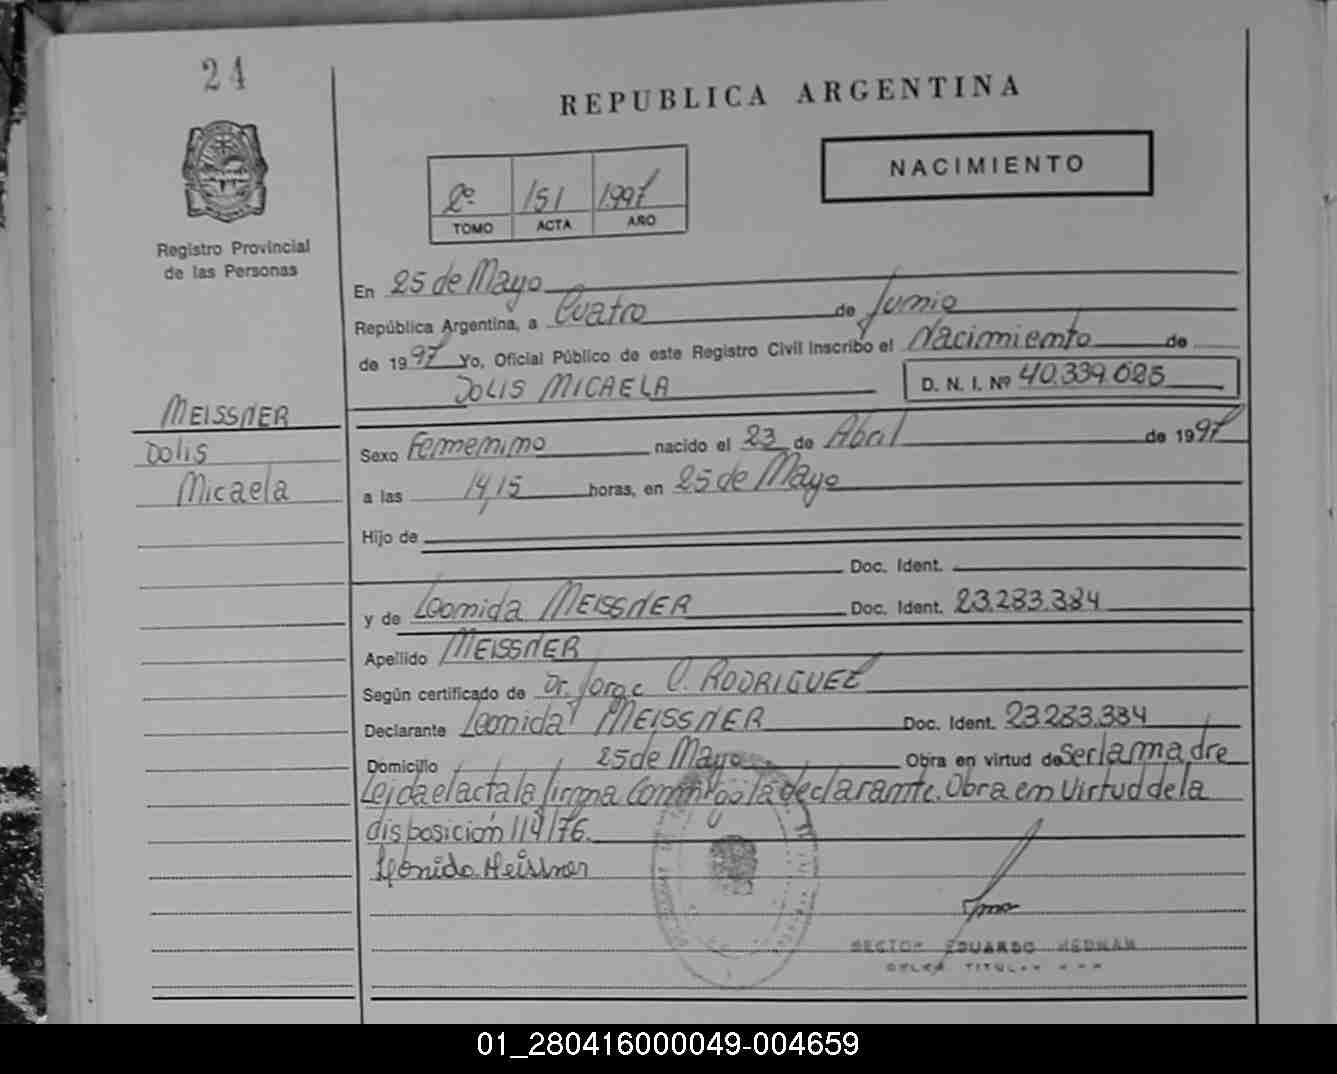 24
REPUBLICA ARGENTINA
NACIMIENTO
2º 151 1997
TOMO ACTA AÑO
Registro Provincial
de las Personas
En 25 de Mayo
República Argentina, a Cuatro de Junio
de 1997 Yo, Oficial Público de este Registro Civil Inscribo el Nacimiento de
DOLIS MICAELA
D. N. I. Nº 40.339.625
MEISSNER
Dolis
Micaela
Sexo Femenino nacido el 23 de Abril de 1997
a las 14,15 horas, en 25 de Mayo
Hijo de
Doc. Ident.
y de Leonida MEISSNER Doc. Ident. 23.283.384
Apellido MEISSNER
Según certificado de Dr. Jorge O. RODRIGUEZ
Declarante Leonida MEISSNER Doc. Ident. 23.283.384
Domicilio 25 de Mayo Obra en virtud de Ser la madre
Leida el acta la firma conmigo la declarante. Obra en Virtud de la
disposición 114/76.
Leonida Meissner
EDUARDO
01_280416000049-004659